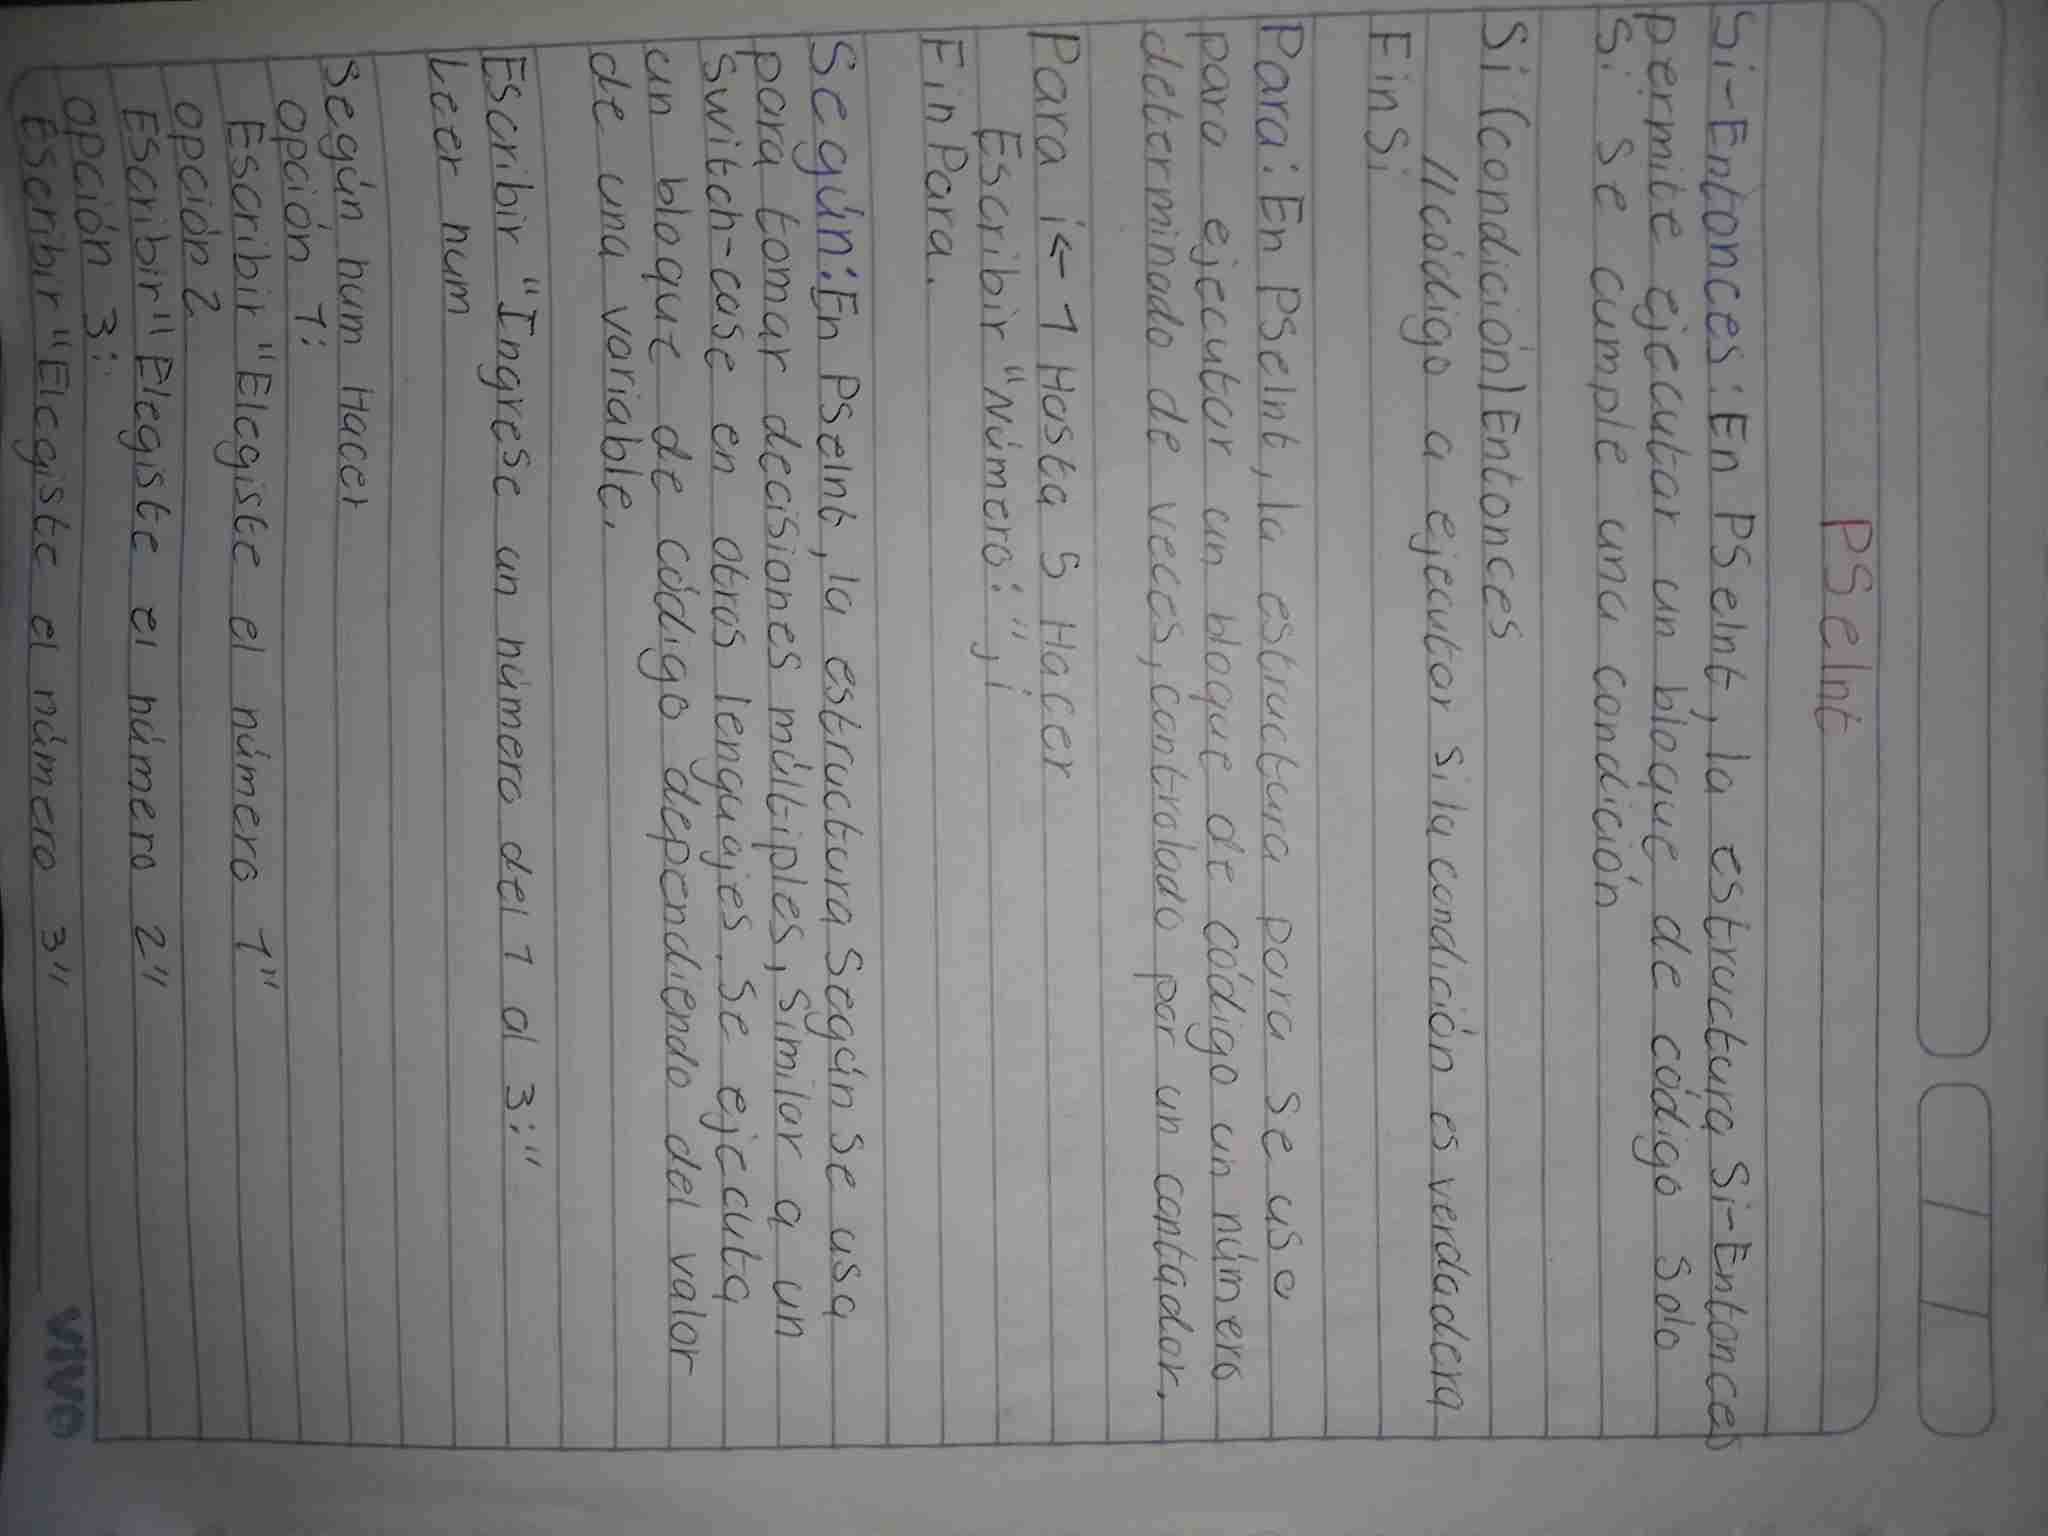 PSeInt
Si-Entonces: En PSeInt, la estructura Si-Entonces
permite ejecutar un bloque de código solo
si se cumple una condición
Si (condición) Entonces
//código a ejecutar si la condición es verdadera
FinSi
Para: En PSeInt, la estructura para se usa
para ejecutar un bloque de código un número
determinado de veces, controlado por un contador.
Para i ← 1 Hasta 5 Hacer
Escribir "Número: ", i
FinPara.
Según: En PSeInt, la estructura Según se usa
para tomar decisiones múltiples, similar a un
switch-case en otros lenguajes. Se ejecuta
un bloque de código dependiendo del valor
de una variable.
Escribir "Ingrese un número del 1 al 3:"
Leer num
Según num Hacer
opción 1:
Escribir "Elegiste el número 1"
opción 2
Escribir "Elegiste el número 2"
opción 3:
Escribir "Elegiste el número 3"
vive